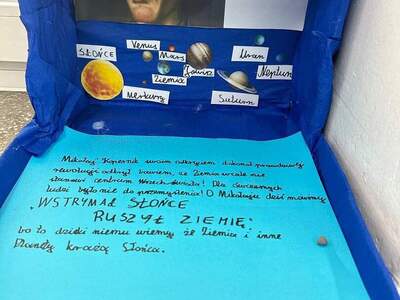 Venus
Mars
Uran
SŁOŃCE
Jowisz
Neptun
Ziemia
Merkury
Saturn
Mikołaj Kopernik swoim odkryciem dokonał prawdziwej
rewolucji odkrył bowiem, że Ziemia wcale nie
stanowi centrum Wszechświata! Dla ówczesnych
ludzi było nie do przemyślenia! O Mikołaju dziś mawiamy
„WSTRZYMAŁ SŁOŃCE
RUSZYŁ ZIEMIĘ"
bo to dzięki niemu wiemy że Ziemia i inne
Planety krążą Słońca.